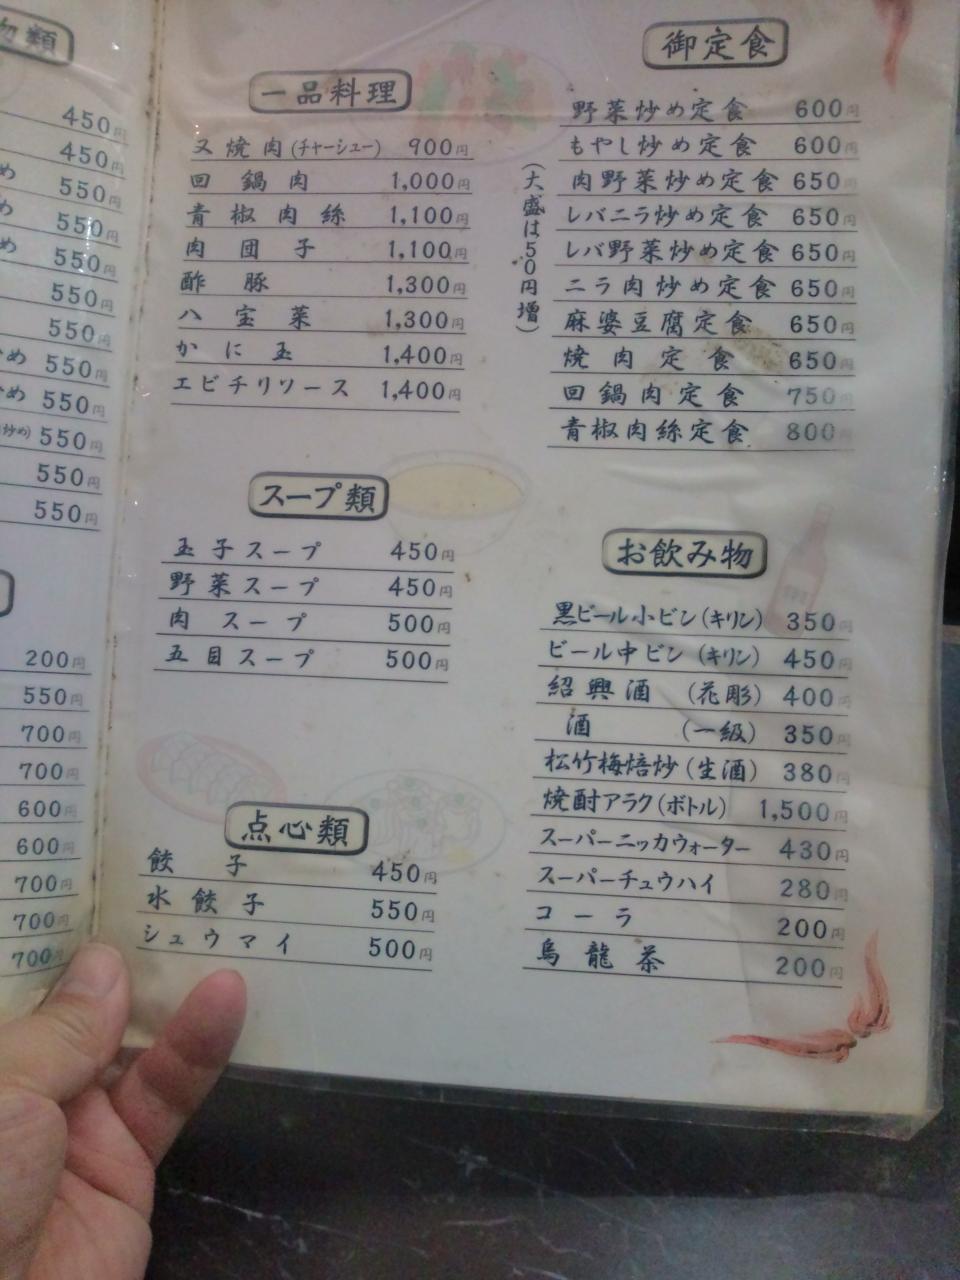 物類
450円
450円
め 550円
め 550円
め 550円
550円
550円
め 550円
め 550円
炒め) 550円
550円
550円
200円
550円
700円
700円
600円
600円
700円
700円
700円
一品料理
叉焼肉(チャーシュー) 900円
回鍋肉 1,000円
青椒肉絲 1,100円
肉団子 1,100円
酢豚 1,300円
八宝菜 1,300円
かに玉 1,400円
エビチリソース 1,400円
スープ類
玉子スープ 450円
野菜スープ 450円
肉スープ 500円
五目スープ 500円
点心類
餃子 450円
水餃子 550円
シュウマイ 500円
御定食
(大盛は50円増)
野菜炒め定食 600円
もやし炒め定食 600円
肉野菜炒め定食 650円
レバニラ炒め定食 650円
レバ野菜炒め定食 650円
ニラ肉炒め定食 650円
麻婆豆腐定食 650円
焼肉定食 650円
回鍋肉定食 750円
青椒肉絲定食 800円
お飲み物
黒ビール小ビン(キリン) 350円
ビール中ビン(キリン) 450円
紹興酒 (花彫) 400円
酒 (一級) 350円
松竹梅焙炒(生酒) 380円
焼酎アラク(ボトル) 1,500円
スーパーニッカウォーター 430円
スーパーチュウハイ 280円
コーラ 200円
烏龍茶 200円